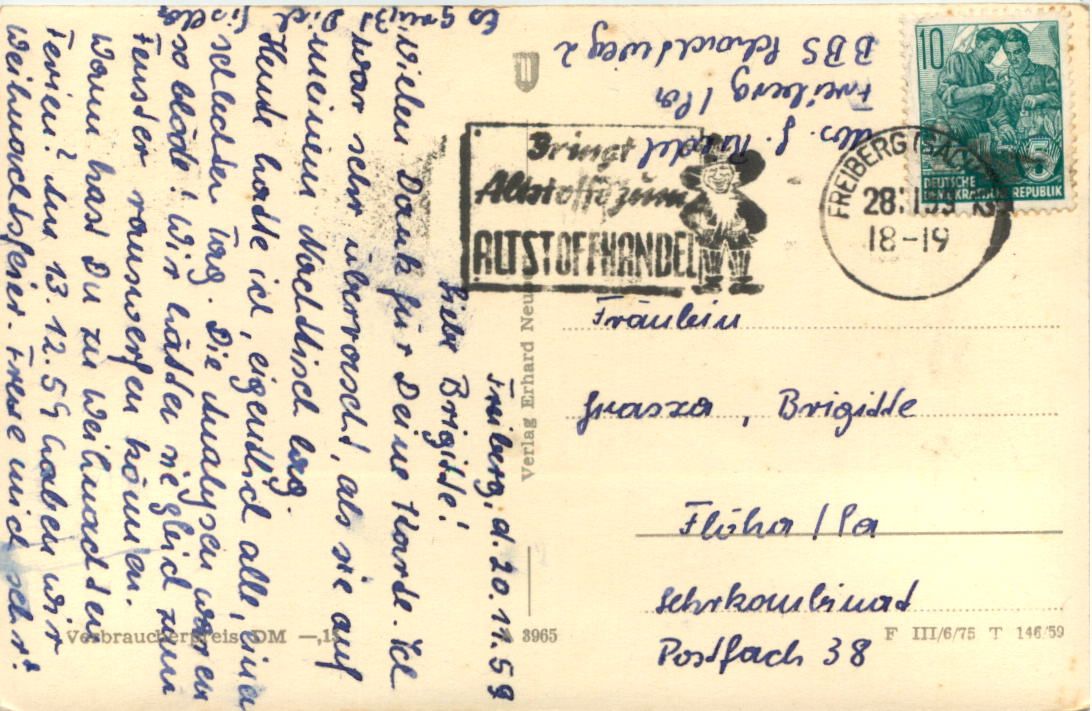 Freiberg, d. 20.11.59
Liebe Brigitte!
Vielen Dank für Deine Karte. Ich
war sehr überrascht, als sie auf
meinem Nachttisch lag.
Heute hatte ich, eigendlich alle, einen
schlechten Tag. Die Analysen waren
so blöde! Wir hätten sie gleich zum
Fenster rauswerfen können.
Wann hast Du zu Weihnachten
Ferien? Am 13.12.59 haben wir
Weihnachtsfeier. Freue mich sehr!
Es grüßt Dich
Abs. G.
Freiberg / Sa
BBS Schachtweg 2
Bringt
Altstoffe zum
ALTSTOFFHANDEL
FREIBERG (SACHS)
18-19
10
5
DEUTSCHE
DEMOKRATISCHE REPUBLIK
Fräulein
Grasza, Brigitte
Flöha / Sa
Lehrkombinat
Postfach 38
Verlag Erhard Neu
Verbraucherpreis DM —,1
3965
F III/6/75 T 146/59